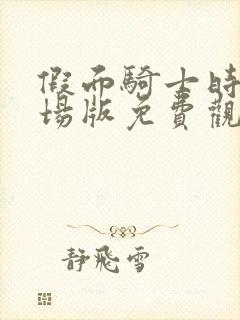 假面騎士時
場版免費觀
靜飛雪